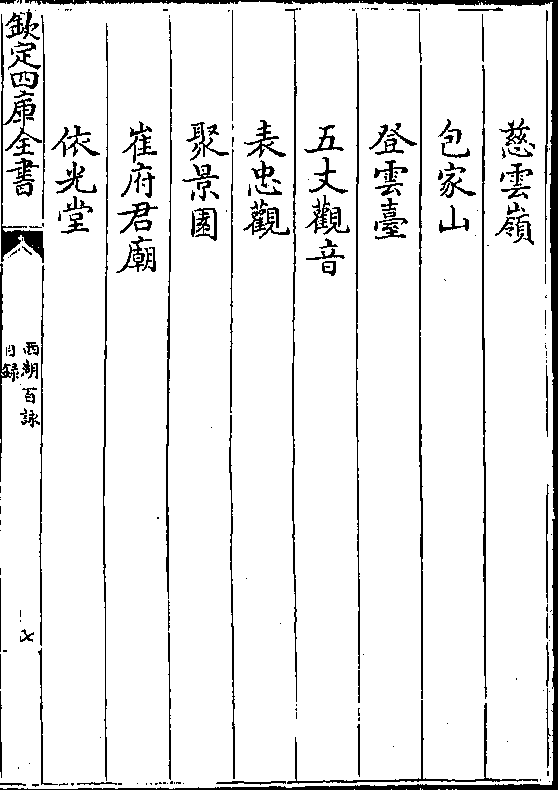 慈雲嶺
包家山
登雲臺
五丈觀音
表忠觀
聚景園
崔府君廟
依光堂
欽定四庫全書
西湖百詠
目錄
七